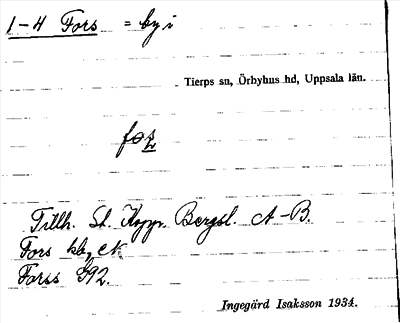 1-4 Fors = by i
Tierps sn, Örbyhus hd, Uppsala län.
Tillh. St. Kopp. Bergsl. A-B.
Fors kb,
Forss 892.
Ingegärd Isaksson 1934.